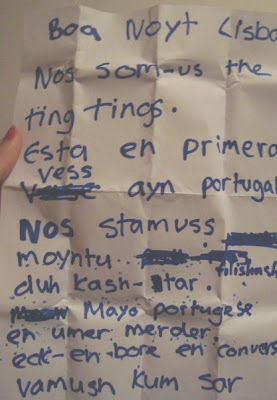 Boa Noyt Lisbo
Nos som-us the
ting tings.
Esta en primera
vess
ayn portugal
Nos stamuss
moyntu
duh kash-tar.
Mayo portugese
en umer merder.
eck-en-bore en convers
vamush kum sar